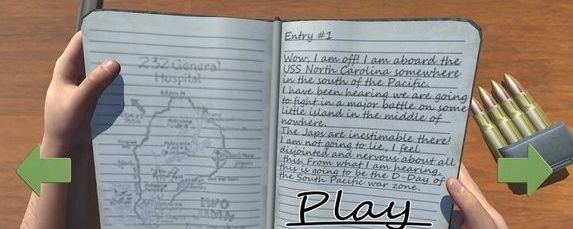 232 General
Hospital
IWO
JIMA
Entry #1
Wow, I am off! I am aboard the
USS North Carolina somewhere
in the south of the Pacific.
I have been hearing we are going
to fight in a major battle on some
little island in the middle of
nowhere.
The Japs are inestimable there!
I am not going to lie, I feel
disjointed and nervous about all
this. From what I am hearing,
this is going to be the D-Day of
the South Pacific war zone.
Play